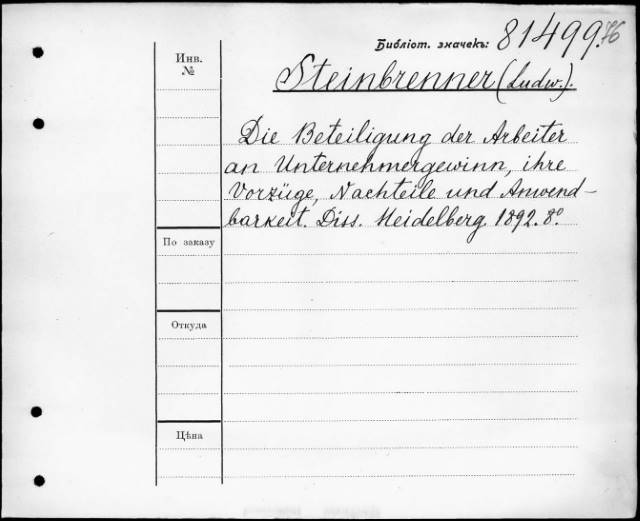 Библіот. значекъ: 81499.76
Инв. №
Steinbrenner (Ludw.).
Die Beteiligung der Arbeiter
an Unternehmergewinn, ihre
Vorzüge, Nachteile und Anwend-
barkeit. Diss. Heidelberg. 1892. 8º.
По заказу
Откуда
Цѣна